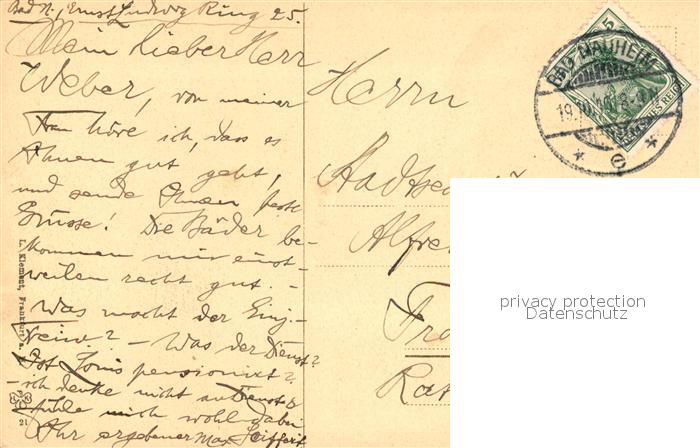 Bad N., Ernst Ludwig Ring 25.
Mein lieber Herr
Weber, von meiner
Frau höre ich, dass es
Ihnen gut geht,
und sende Ihnen beste
Grüsse! Die Bäder be-
kommen mir einst-
weilen recht gut. -
Was macht der Einj.-
Verein? - Was der Dienst?
Ist pensioniert?
- ich denke nicht an Dienst &
fühle mich wohl dabei
Ihr ergebener Max Seiffert
L. Klement, Frankfurt a.
21
Herrn
Alfre
BAD NAUHEIM
19.10.
8-9
e
5
privacy protection
Datenschutz